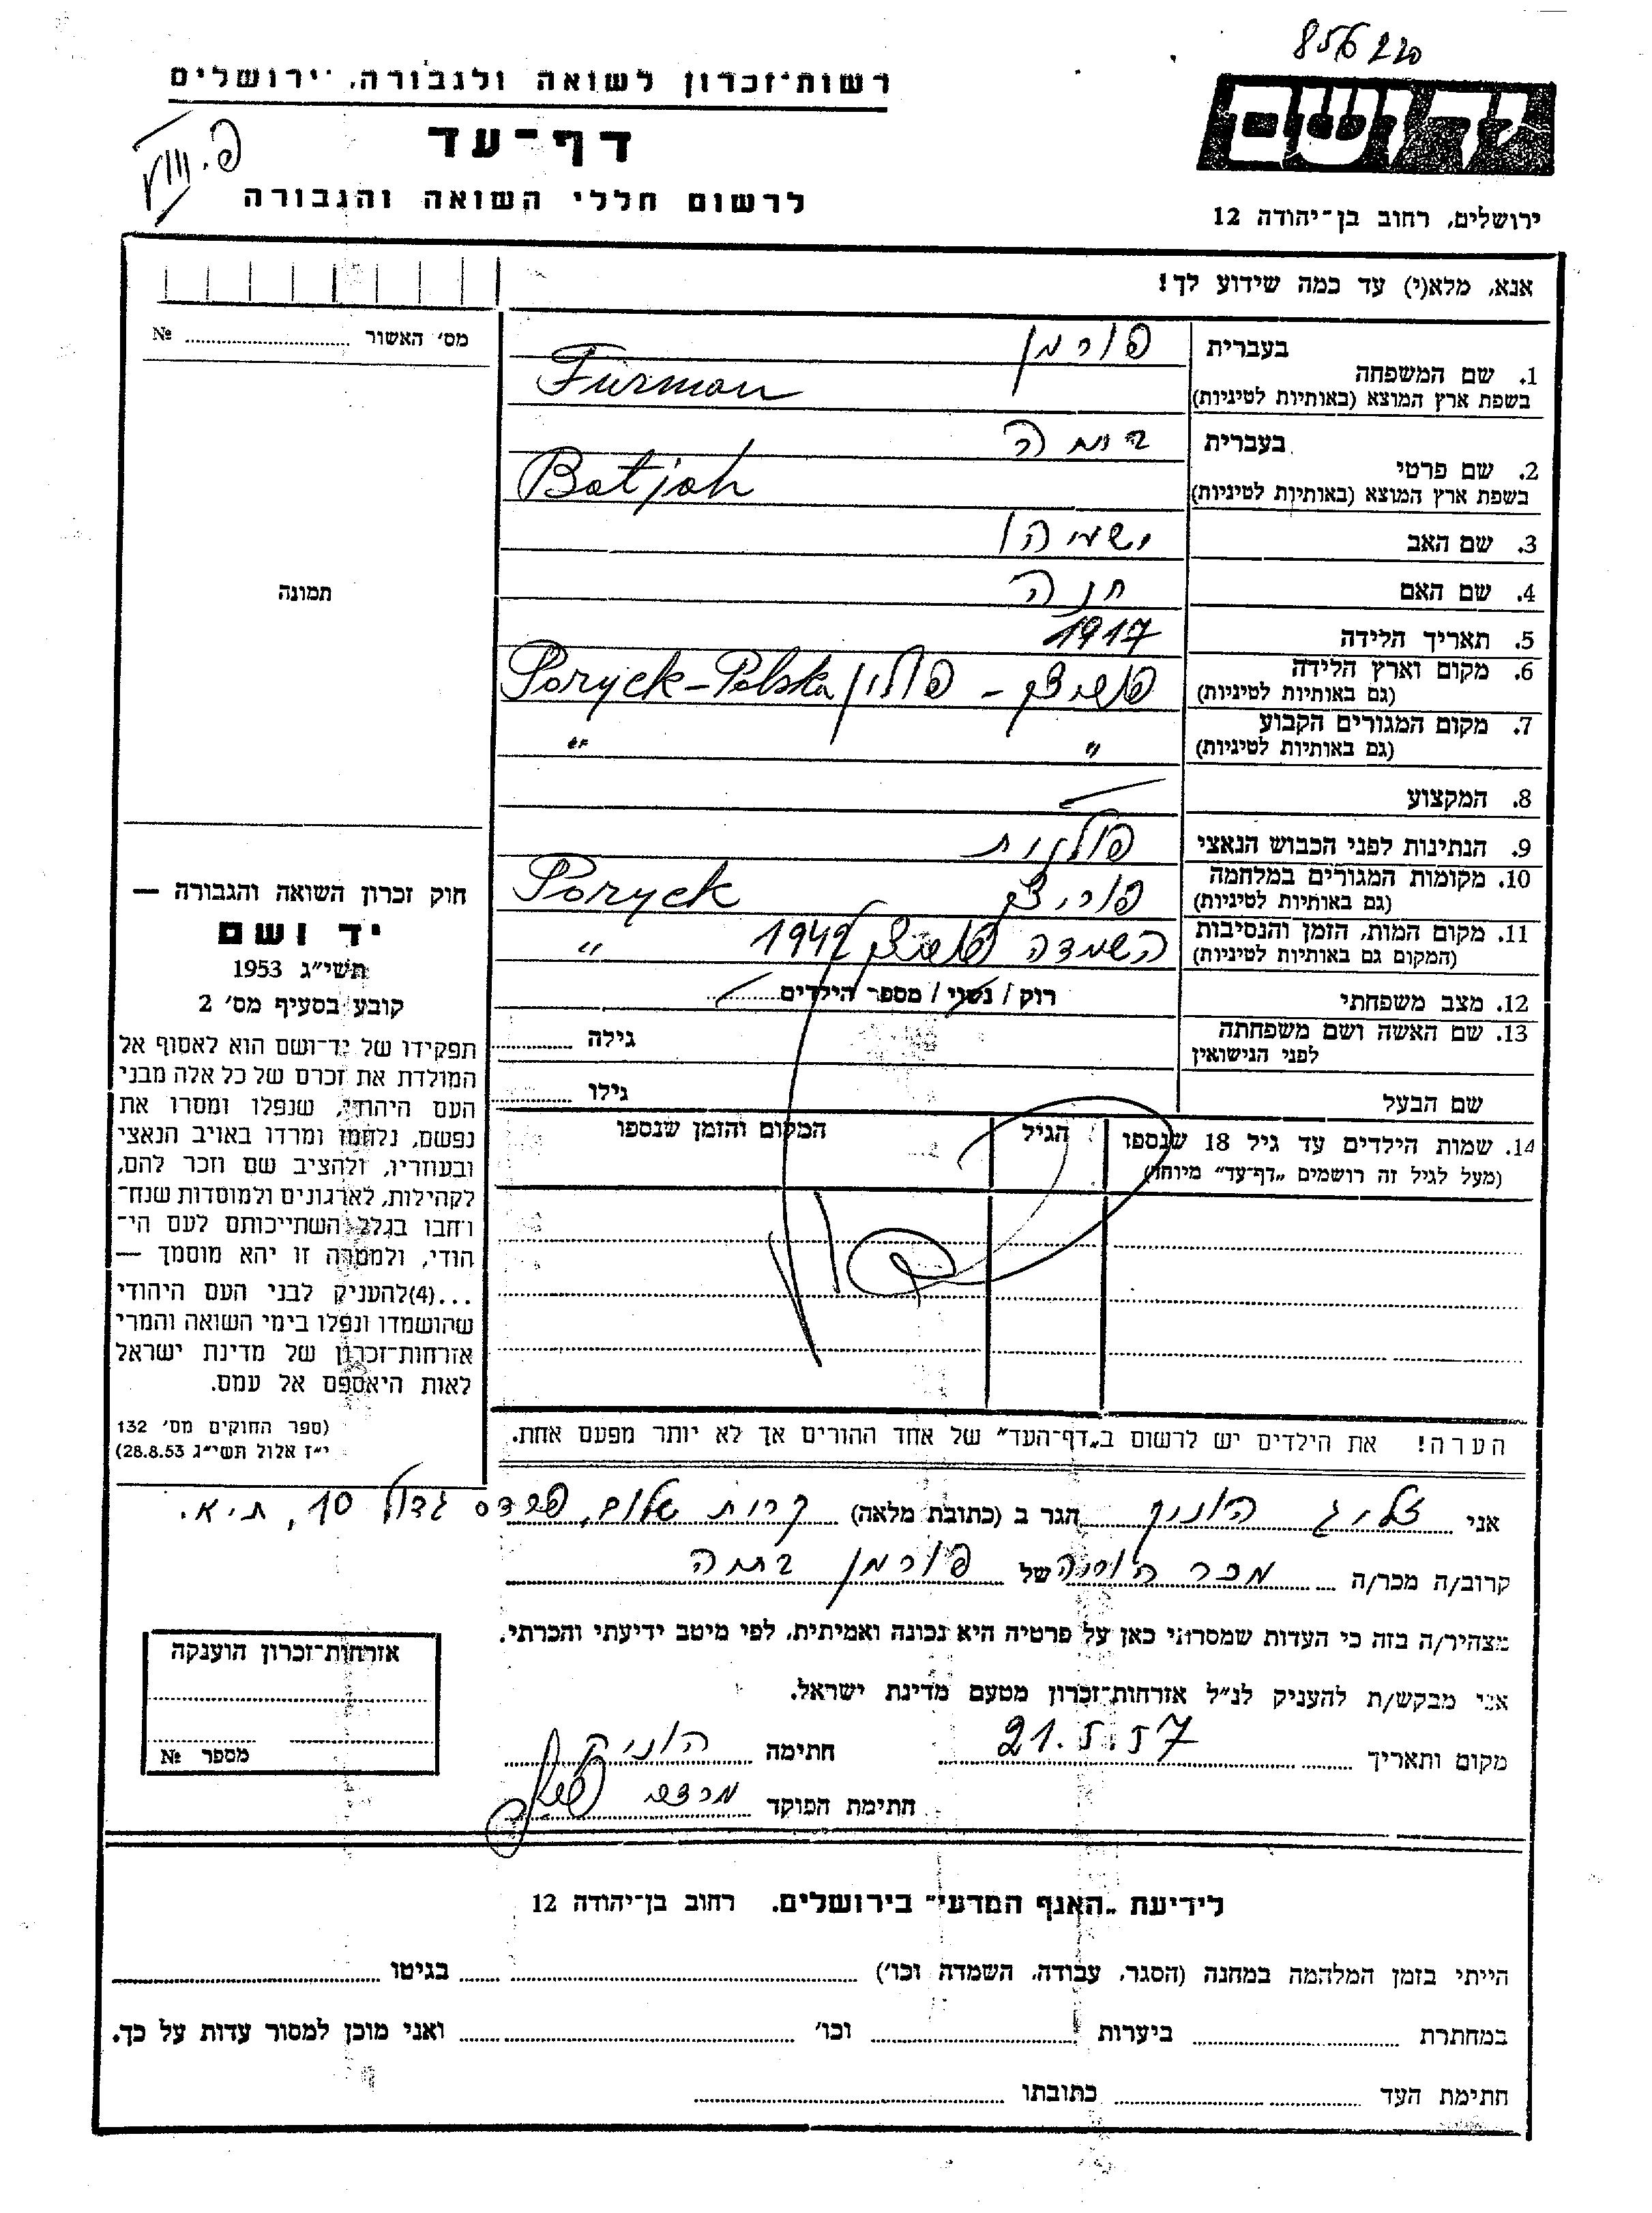 856220
יד ושם
רשות־זכרון לשואה ולגבורה, ירושלים
דף־עד
לרשום חללי השואה והגבורה
ירושלים, רחוב בן־יהודה 12
אנא, מלא(י) עד כמה שידוע לך!
מס׳ האשור ........ №
תמונה
בעברית פורמן
1. שם המשפחה
בשפת ארץ המוצא (באותיות לטיניות) Furman
בעברית
2. שם פרטי
בשפת ארץ המוצא (באותיות לטיניות) Batjah
3. שם האב ישעיהו
4. שם האם חנה
5. תאריך הלידה 1917
6. מקום וארץ הלידה
(גם באותיות לטיניות) פוריצק - פולין Poryck-Polska
7. מקום המגורים הקבוע
(גם באותיות לטיניות) " "
8. המקצוע
9. הנתינות לפני הכבוש הנאצי פולנית
10. מקומות המגורים במלחמה
(גם באותיות לטיניות) פוריצק Poryck
11. מקום המות, הזמן והנסיבות
(המקום גם באותיות לטיניות) השמדה פוריצק 1942 "
12. מצב משפחתי רוק / נשוי / מספר הילדים........
13. שם האשה ושם משפחתה
לפני הנישואין גילה ........
שם הבעל גילו ........
14. שמות הילדים עד גיל 18 שנספו הגיל המקום והזמן שנספו
(מעל לגיל זה רושמים „דף־עד" מיוחד)
הערה! את הילדים יש לרשום ב„דף־העד" של אחד ההורים אך לא יותר מפעם אחת.
חוק זכרון השואה והגבורה —
יד ושם
תשי״ג 1953
קובע בסעיף מס׳ 2
תפקידו של יד־ושם הוא לאסוף אל
המולדת את זכרם של כל אלה מבני
העם היהודי, שנפלו ומסרו את
נפשם, נלחמו ומרדו באויב הנאצי
ובעוזריו, ולהציב שם וזכר להם,
לקהילות, לארגונים ולמוסדות שנח־
רחבו בגלל השתייכותם לעם הי־
הודי, ולמטרה זו יהא מוסמך —
...(4)להעניק לבני העם היהודי
שהושמדו ונפלו בימי השואה והמרי
אזרחות־זכרון של מדינת ישראל
לאות היאספם אל עמם.
(ספר החוקים מס׳ 132
י״ז אלול תשי״ג 28.8.53)
אני זליג הוניק הגר ב (כתובת מלאה) קרית שלום, פרדס גדול 10, ת.א.
קרוב/ה מכר/ה מכר של פורמן בתיה
מצהיר/ה בזה כי העדות שמסרתי כאן על פרטיה היא נכונה ואמיתית, לפי מיטב ידיעתי והכרתי.
אני מבקש/ת להעניק לנ״ל אזרחות־זכרון מטעם מדינת ישראל.
מקום ותאריך 21.5.57 חתימה הוניק
חתימת הפוקד
אזרחות־זכרון הוענקה
מספר №
לידיעת „האגף המדעי" בירושלים. רחוב בן־יהודה 12
הייתי בזמן המלהמה במחנה (הסגר, עבודה, השמדה וכו׳) ........ בגיטו ........
במחתרת ........ ביערות ........ וכו׳ ........ ואני מוכן למסור עדות על כך.
חתימת העד ........ כתובתו ........